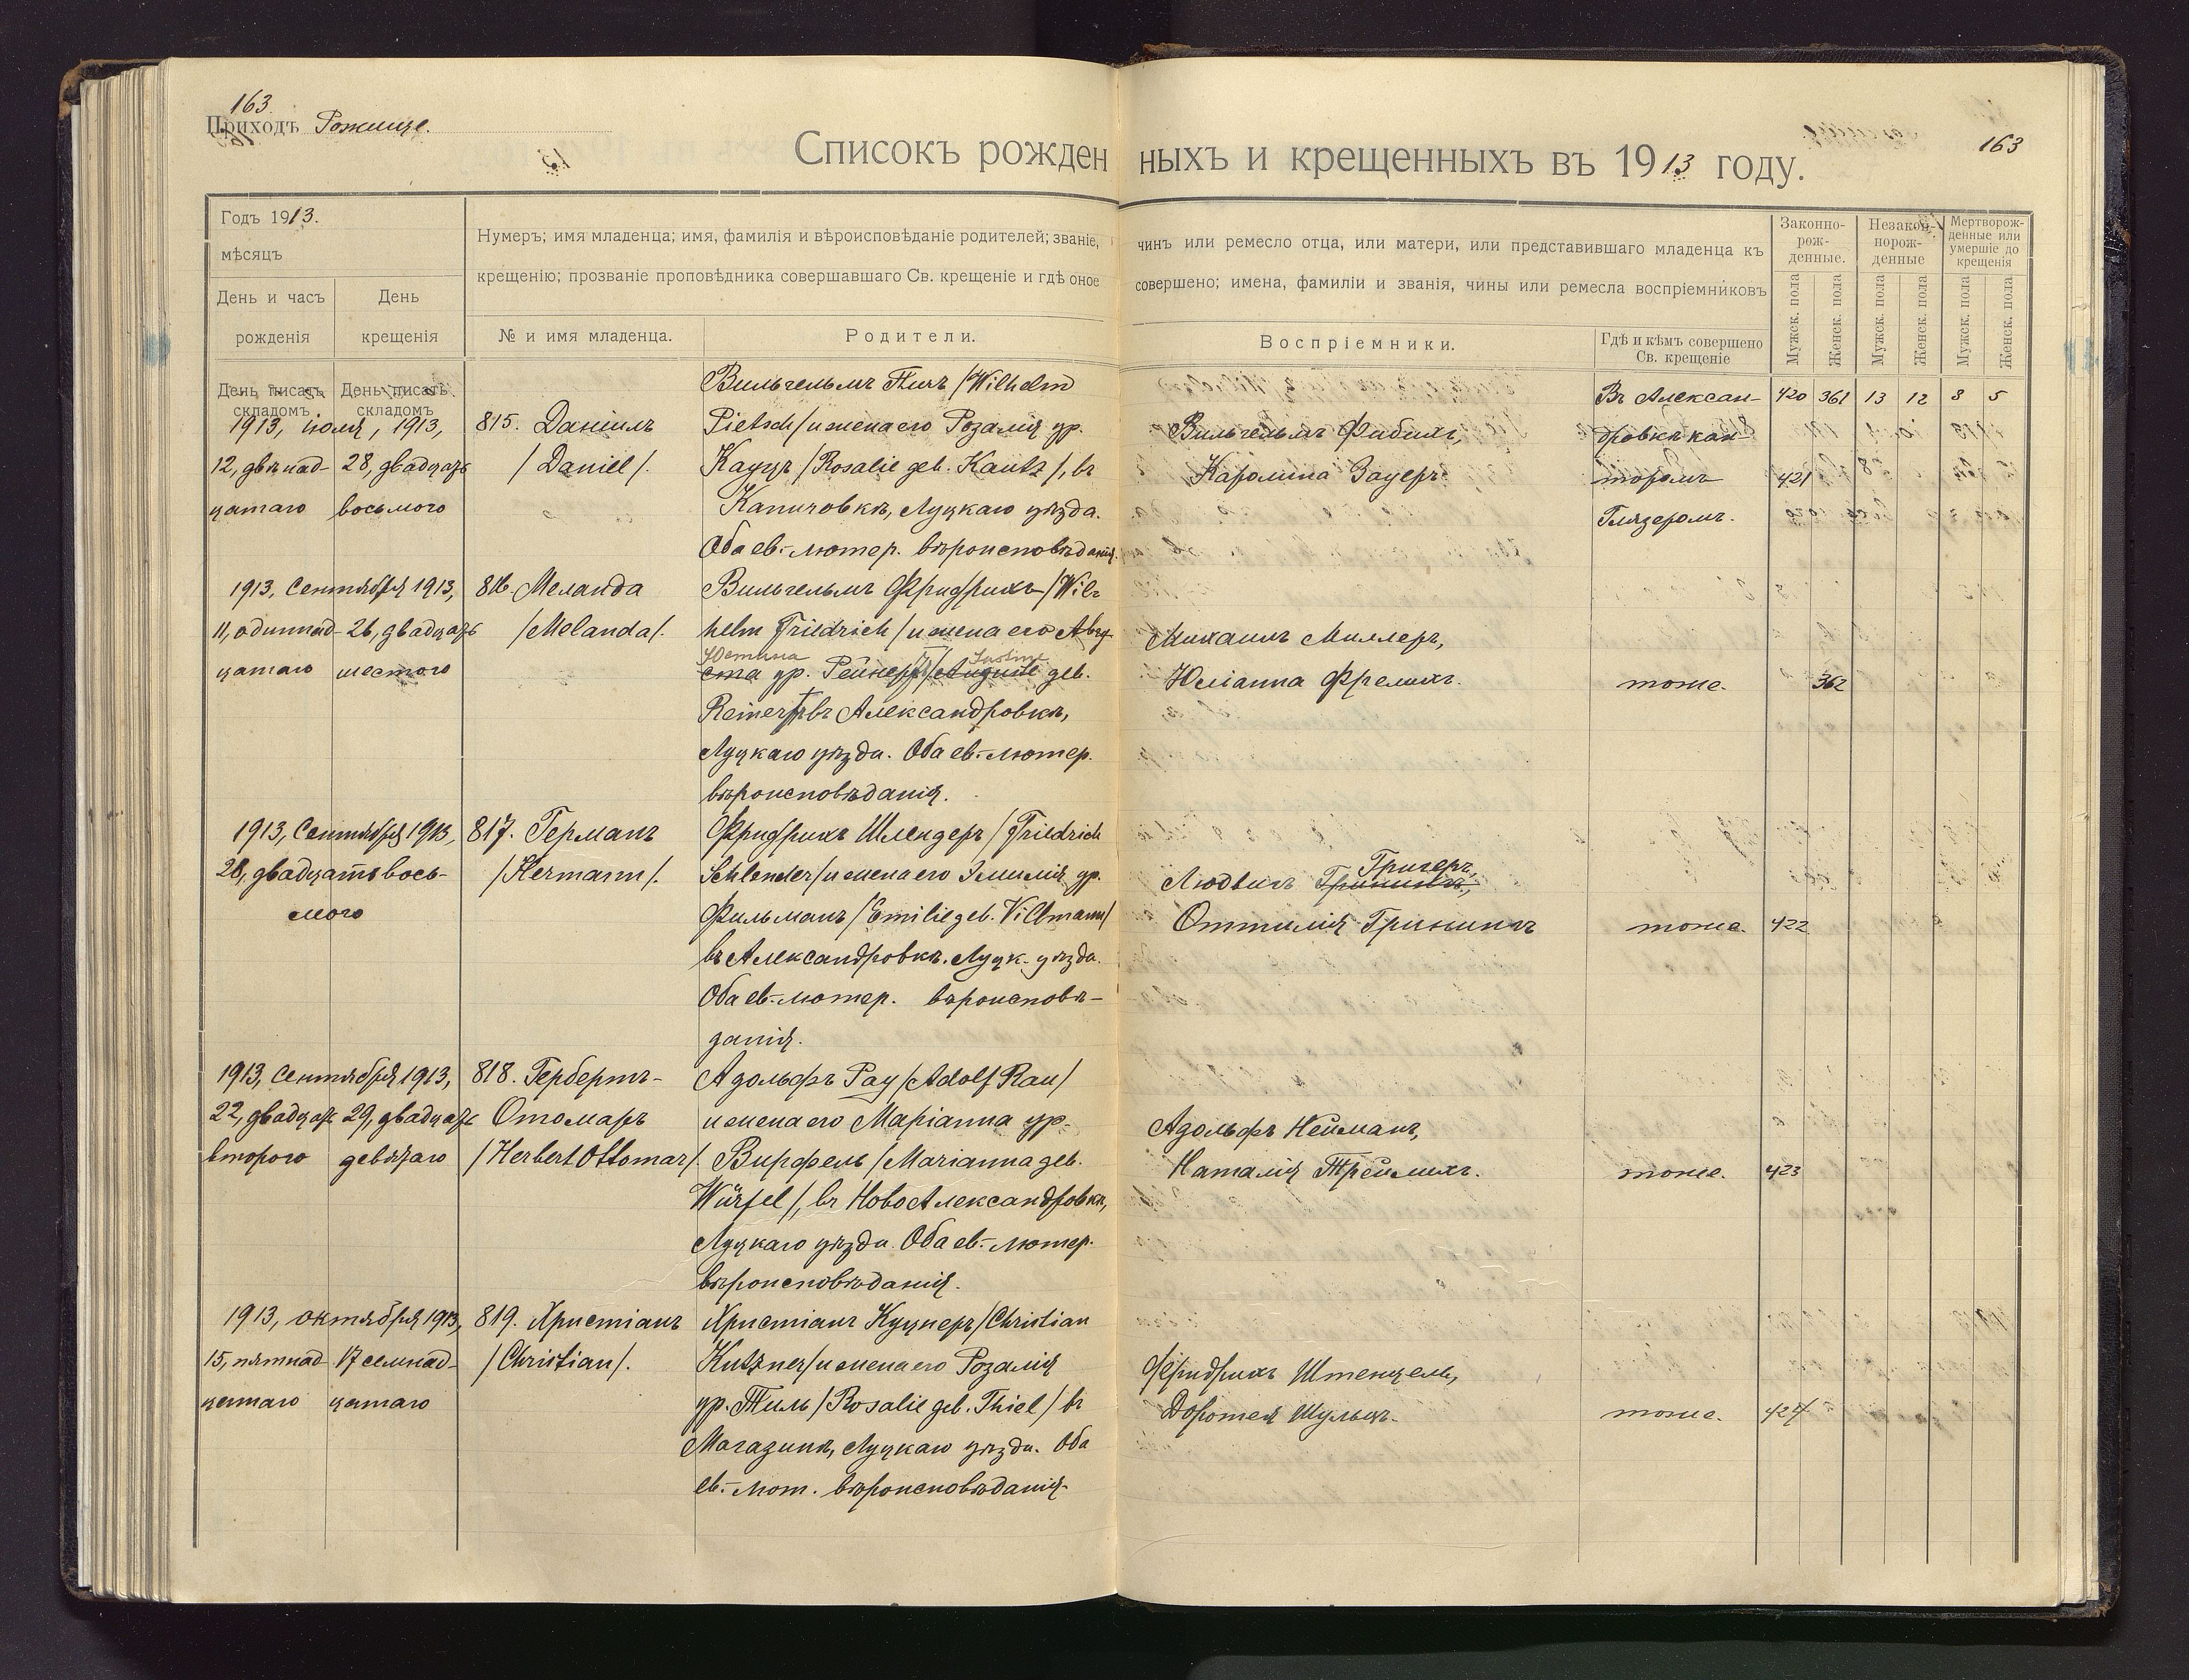 163
Приходъ Рожище.
Списокъ рожденныхъ и крещенныхъ въ 1913 году.
163
Годъ 1913.
мѣсяцъ
День и часъ рожденія
День крещенія
Нумеръ; имя младенца; имя, фамилія и вѣроисповѣданіе родителей; званіе, чинъ или ремесло отца, или матери, или представившаго младенца къ
крещенію; прозваніе проповѣдника совершавшаго Св. крещеніе и гдѣ оное совершено; имена, фамиліи и званія, чины или ремесла воспріемниковъ
№ и имя младенца.
Родители.
Воспріемники.
Гдѣ и кѣмъ совершено
Св. крещеніе
Законно-
рож-
денные.
Незакон-
норож-
денные
Мертворож-
денные или
умершіе до
крещенія
Мужск. пола
Женск. пола
Мужск. пола
Женск. пола
Мужск. пола
Женск. пола
День писать
складомъ
День писать
складомъ
420 361 13 12 8 5
1913, іюля, 1913,
12, двѣнад-
цатаго
28, двадцать
восьмого
815. Даніилъ
/Daniel/.
Вильгельмъ Пичъ /Wilhelm
Pietsch/ и жена его Розалія ур.
Кауцъ /Rosalie geb. Kautz/, въ
Капичовкѣ, Луцкаго уѣзда.
Оба ев.-лютер. вѣроисповѣданія.
Вильгельмъ Фибихъ,
Каролина Зауеръ.
Въ Алексан-
дровкѣ кан-
торомъ
Глязеромъ.
421
1913, Сентября 1913,
11, одиннад-
цатаго
26, двадцать
шестого
816. Меланда
/Melanda/.
Вильгельмъ Фридрихъ /Wil-
helm Friedrich/ и жена его Авгу-
Юстина Justine
ста ур. Рейнертъ /Auguste geb.
Reinert/ въ Александровкѣ,
Луцкаго уѣзда. Оба ев.-лютер.
вѣроисповѣданія.
Михаилъ Миллеръ,
Юліанна Фрелихъ.
тоже.
362
1913, Сентября 1913,
28, двадцать вось-
мого
817. Германъ
/Hermann/.
Фридрихъ Шлендеръ /Friedrich
Schlender/ и жена его Эмилія ур.
Фильманъ /Emilie geb. Villmann/
въ Александровкѣ. Луцк. уѣзда.
Оба ев.-лютер. вѣроисповѣ-
данія.
Григеръ,
Людвигъ Грининг,
Оттилія Гринингъ
тоже.
422
1913, Сентября 1913,
22, двадцать
второго
29, двадцать
девятаго
818. Гербертъ-
Отомаръ
/Herbert Ottomar/.
Адольфъ Рау /Adolf Rau/
и жена его Маріанна ур.
Вирфель /Marianna geb.
Würfel/, въ НовоАлександровкѣ,
Луцкаго уѣзда. Оба ев.-лютер.
вѣроисповѣданія.
Адольфъ Нейманъ,
Наталія Треймихъ.
тоже.
423
1913, октября 1913,
15, пятнад-
цатаго
17 семнад-
цатаго
819. Христіанъ
/Christian/.
Христіанъ Куцнеръ /Christian
Kutzner/ и жена его Розалія
ур. Тиль /Rosalie geb. Thiel/ въ
Магазинѣ, Луцкаго уѣзда. Оба
ев.-лют. вѣроисповѣданія.
Фридрихъ Штенцель,
Доротея Шульцъ.
тоже.
424